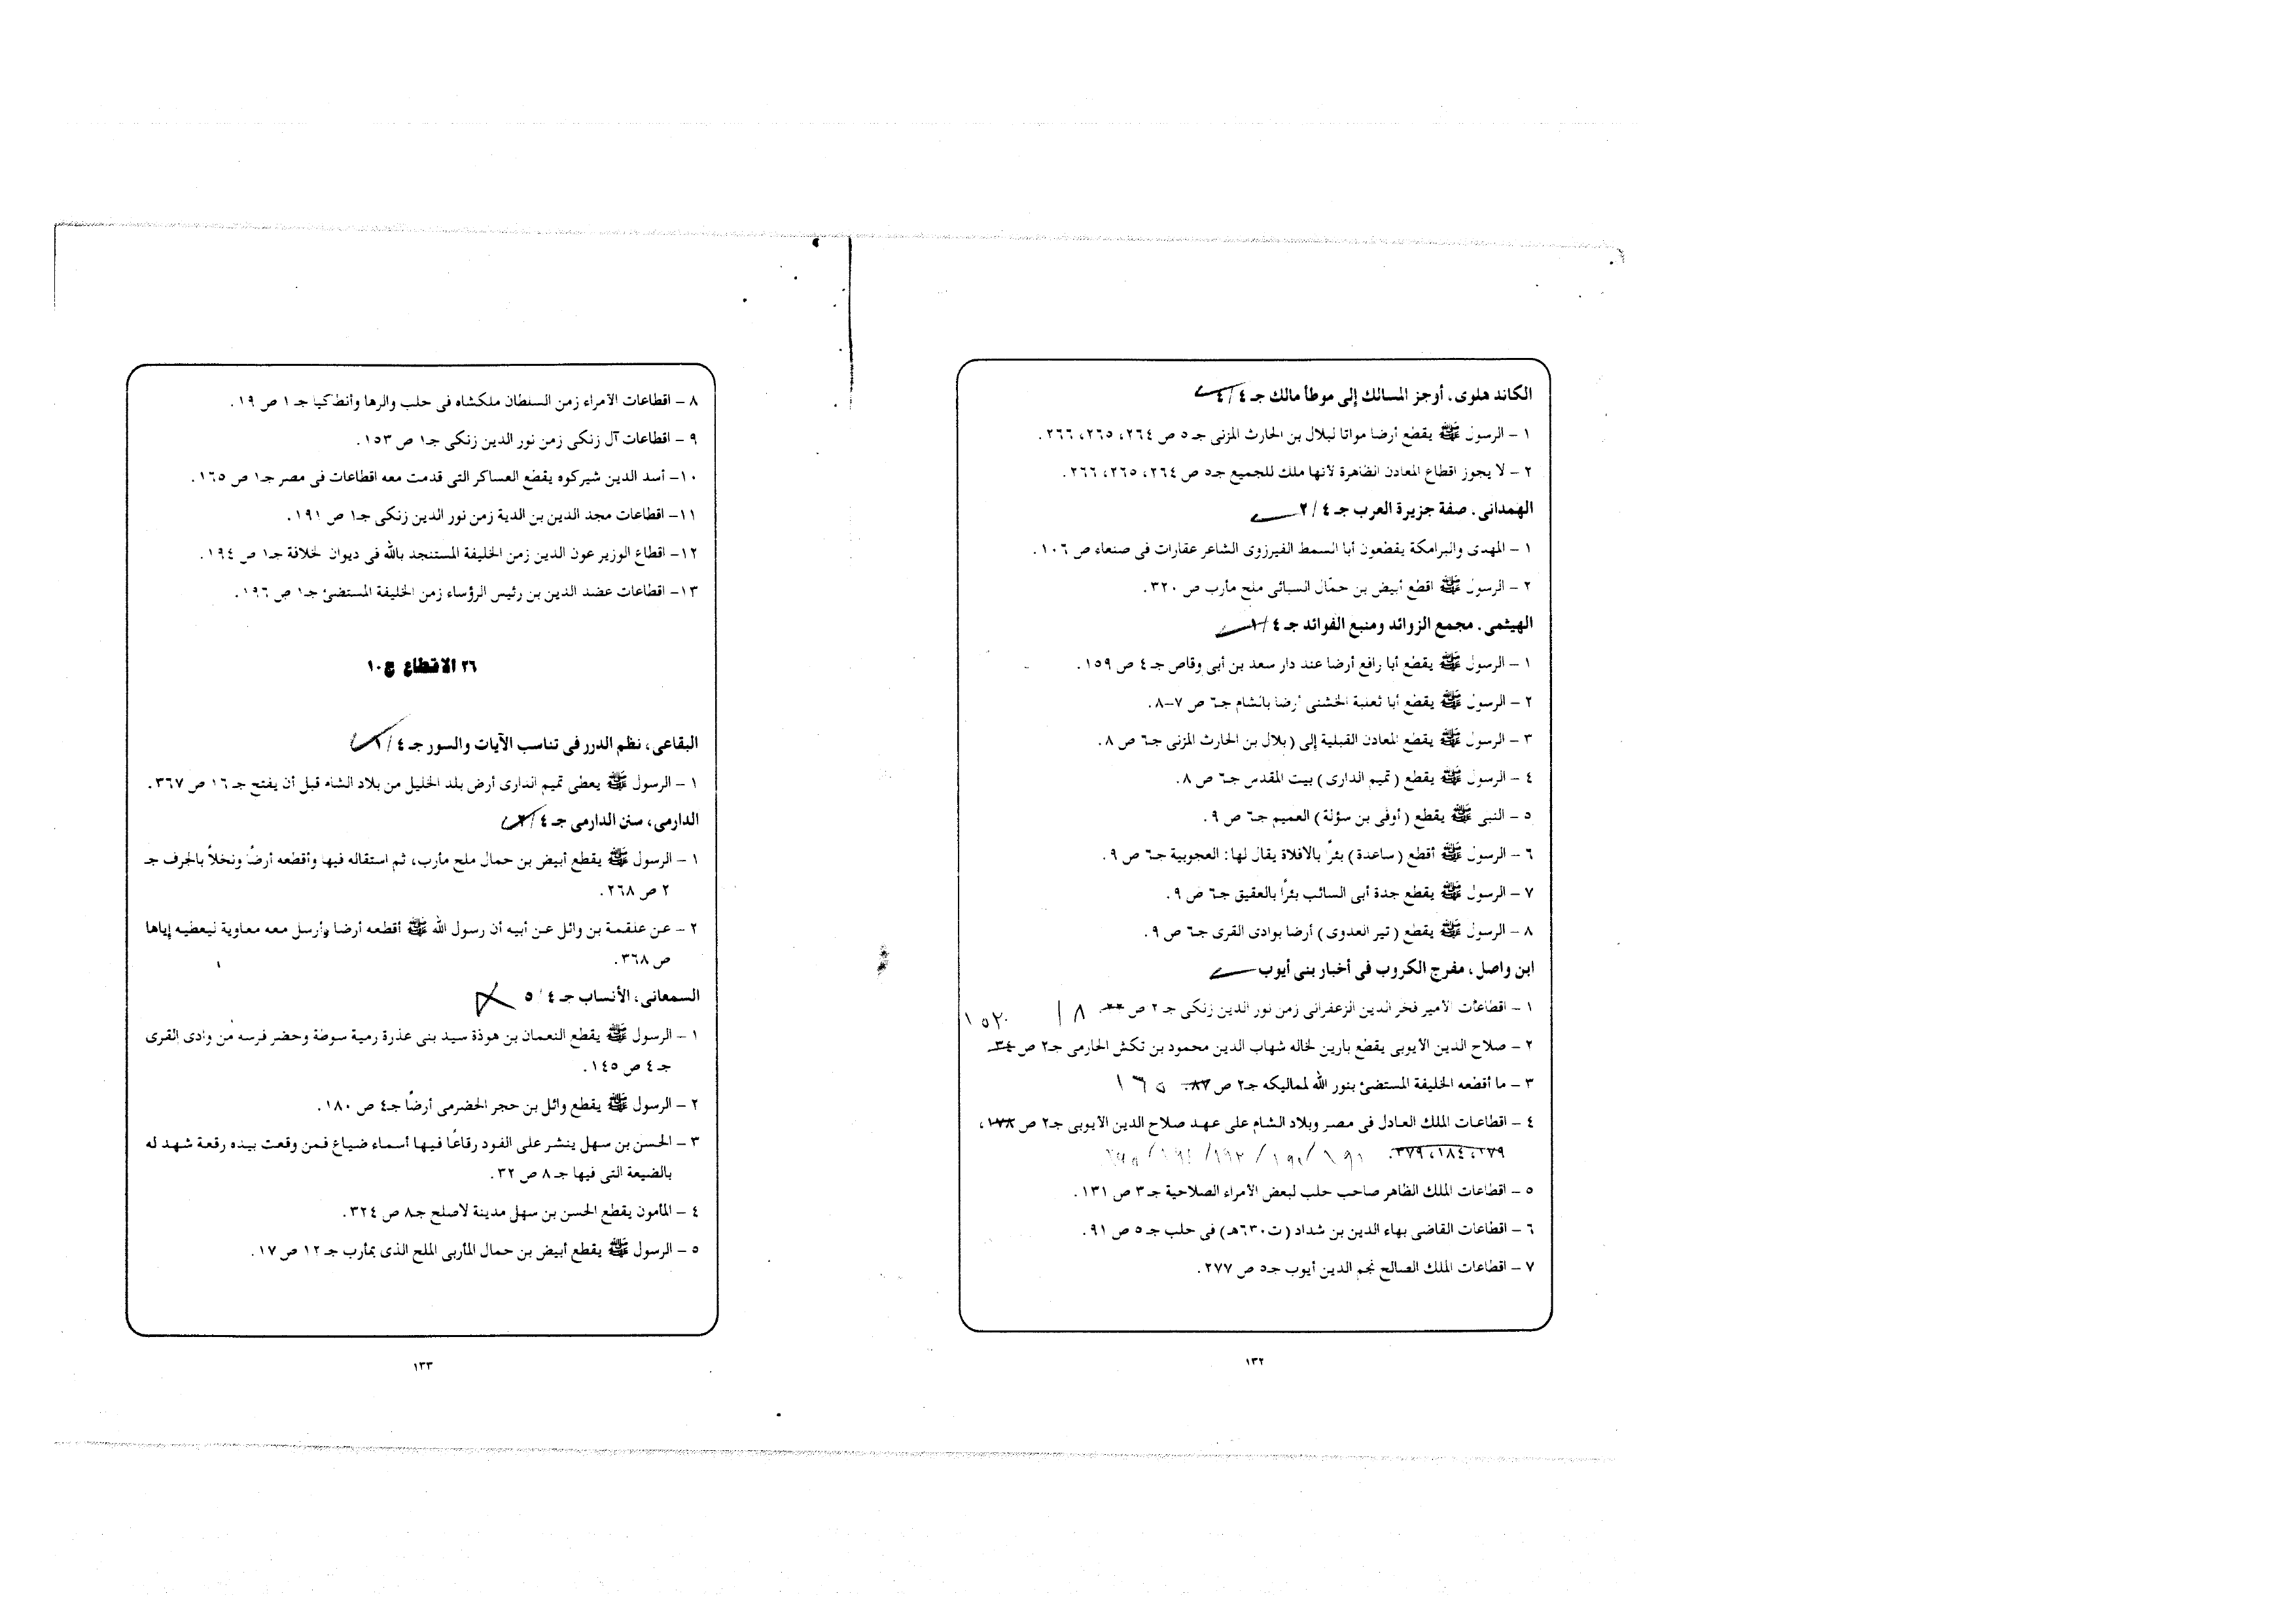 الكاند هلوى، أوجز المسالك إلى موطأ مالك جـ ٤/٤
١ – الرسول ﷺ يقطع أرضا مواتا لبلال بن الحارث المزنى جـ ٥ ص ٢٦٤، ٢٦٥، ٢٦٦.
٢ – لا يجوز اقطاع المعادن الظاهرة لأنها ملك للجميع جـ٥ ص ٢٦٤، ٢٦٥، ٢٦٦.
الهمدانى. صفة جزيرة العرب جـ ٢/٤
١ – المهدى والبرامكة يقطعون أبا السمط الفيرزوى الشاعر عقارات فى صنعاء ص ١٠٦.
٢ – الرسول ﷺ اقطع أبيض بن حمّال السبائى ملح مأرب ص ٣٢٠.
الهيثمى. مجمع الزوائد ومنبع الفوائد جـ ١/٤
١ – الرسول ﷺ يقطع أبا رافع أرضا عند دار سعد بن أبى وقاص جـ ٤ ص ١٥٩.
٢ – الرسول ﷺ يقطع أبا ثعلبة الخشنى أرضا بالشام جـ٦ ص ٧–٨.
٣ – الرسول ﷺ يقطع المعادن القبلية إلى (بلال بن الحارث المزنى جـ٦ ص ٨.
٤ – الرسول ﷺ يقطع (تميم الدارى) بيت المقدس جـ٦ ص ٨.
٥ – النبى ﷺ يقطع (أوفى بن سؤلة) العميم جـ٦ ص ٩.
٦ – الرسول ﷺ أقطع (ساعدة) بئراً بالافلاة يقال لها: العجوبية جـ٦ ص ٩.
٧ – الرسول ﷺ يقطع جدة أبى السائب بئراً بالعقيق جـ٦ ص ٩.
٨ – الرسول ﷺ يقطع (تير العدوى) أرضا بوادى القرى جـ٦ ص ٩.
ابن واصل، مفرج الكروب فى أخبار بنى أيوب
١ – اقطاعات الأمير فخر الدين الزعفرانى زمن نور الدين زنكى جـ ٢ ص
٢ – صلاح الدين الأيوبى يقطع بارين لخاله شهاب الدين محمود بن تكش الحارمى جـ٢ ص ٣٤
٣ – ما أقطعه الخليفة المستضئ بنور الله لمماليكه جـ٢ ص ٨٧.
٤ – اقطاعات الملك العادل فى مصر وبلاد الشام على عهد صلاح الدين الأيوبى جـ٢ ص ١٧٨،
١٧٩، ١٨٤، ٣٧٩.
٥ – اقطاعات الملك الظاهر صاحب حلب لبعض الأمراء الصلاحية جـ ٣ ص ١٣١.
٦ – اقطاعات القاضى بهاء الدين بن شداد (ت٦٣٠هـ) فى حلب جـ ٥ ص ٩١.
٧ – اقطاعات الملك الصالح نجم الدين أيوب جـ٥ ص ٢٧٧.
١٣٢
٨ – اقطاعات الأمراء زمن السلطان ملكشاه فى حلب والرها وأنطاكيا جـ ١ ص ١٩.
٩ – اقطاعات آل زنكى زمن نور الدين زنكى جـ١ ص ١٥٣.
١٠– أسد الدين شيركوه يقطع العساكر التى قدمت معه اقطاعات فى مصر جـ١ ص ١٦٥.
١١– اقطاعات مجد الدين بن الدية زمن نور الدين زنكى جـ١ ص ١٩١.
١٢– اقطاع الوزير عون الدين زمن الخليفة المستنجد بالله فى ديوان لخلافة جـ١ ص ١٩٤.
١٣– اقطاعات عضد الدين بن رئيس الرؤساء زمن الخليفة المستضئ جـ١ ص ١٩٦.
٢٦ الاقطاع ج١٠
البقاعى، نظم الدرر فى تناسب الآيات والسور جـ ١/٤
١ – الرسول ﷺ يعطى تميم الدارى أرض بلد الخليل من بلاد الشام قبل أن يفتح جـ ١٦ ص ٣٦٧.
الدارمى، سنن الدارمى جـ ٢/٤
١ – الرسول ﷺ يقطع أبيض بن حمال ملح مأرب، ثم استقاله فيها وأقطعه أرضًا ونخلاً بالجرف جـ
٢ ص ٢٦٨.
٢ – عن علقمة بن وائل عن أبيه أن رسول الله ﷺ أقطعه أرضا وأرسل معه معاوية ليعطيه إياها
ص ٣٦٨.
السمعانى، الأنساب جـ ٥/٤
١ – الرسول ﷺ يقطع النعمان بن هوذة سيد بنى عذرة رمية سوطة وحضر فرسه من وادى القرى
جـ ٤ ص ١٤٥.
٢ – الرسول ﷺ يقطع وائل بن حجر الحضرمى أرضًا جـ٤ ص ١٨٠.
٣ – الحسن بن سهل ينشر على الفود رقاعًا فيها أسماء ضياع فمن وقعت بيده رقعة شهد له
بالضيعة التى فيها جـ ٨ ص ٣٢.
٤ – المأمون يقطع الحسن بن سهل مدينة لاصلح جـ٨ ص ٣٢٤.
٥ – الرسول ﷺ يقطع أبيض بن حمال المأربى الملح الذى بمأرب جـ ١٢ ص ١٧.
١٣٣